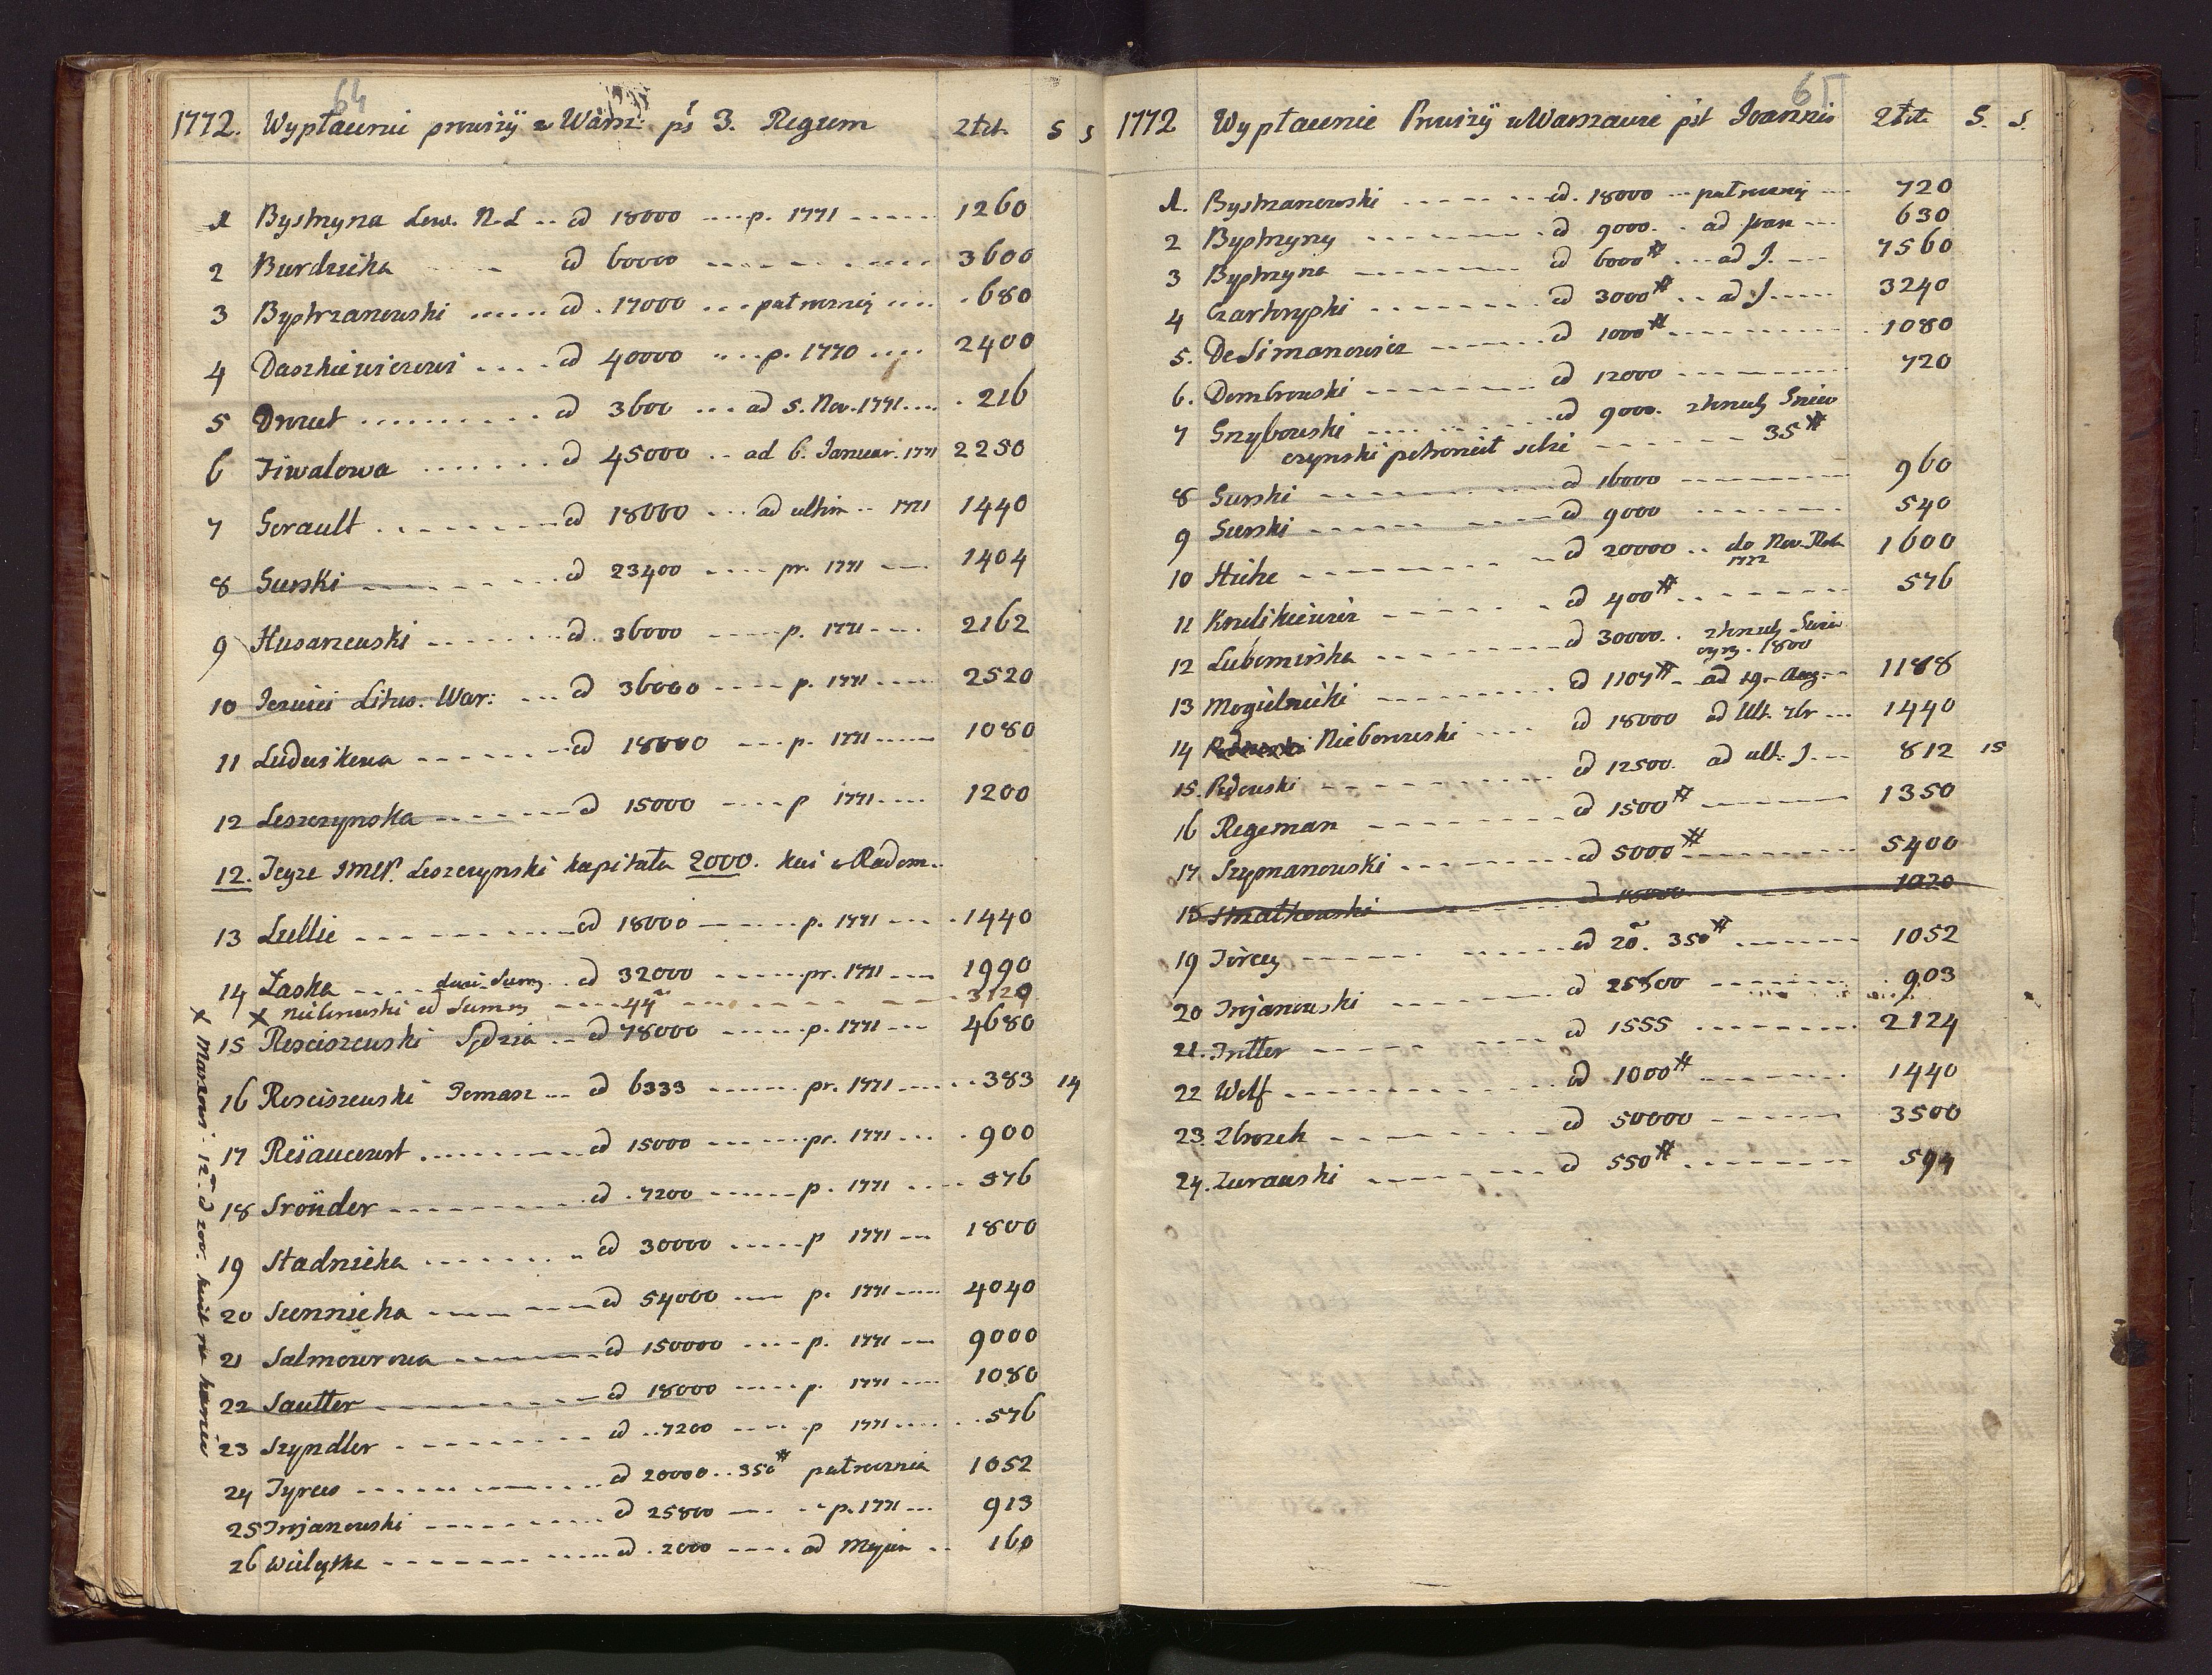 64
1772. Wypłacenie prowizÿ w Warsz: pś 3. Regum złt. S S
1 Bystrzyna Low. N.L .. od 18000 .... p. 1771 ...... 1260
2 Burdzicka od 60000 ........ 3600
3 Bystrzanowski ...... od . 17000 ... pułroczniy .... 680
4 Daszkiewiczowi .... od 40000 .... p. 1770 .... 2400
5 Drouet ........ od 3600 ... ad 5. Nov. 1771 .... 216
6 Tiwalowa ....... od 45000 .. ad 6. Januar. 1771 2250
7 Gerault ........ od 18000 ... ad ultim .. 1771 1440
8 Gurski ........ od 23400 .... pr. 1771 .... 1404
9 Husarzewski ...... od . 36000 ..... p. 1771 .... 2162
10 Jezuici Litew. War: ... od 36000 ..... p. 1771 .... 2520
11 Ludwikowa ....... od 18000 .... p. 1771 ..... 1080
12 Leszczynska ....... od 15000 ..... p 1771 .... 1200
12. Tegże JMP. Leszczynski kapitała 2000. kui w Radom..
13 Lullie ......... od 18000 ..... p. 1771 .... 1440
14 Łaska .... dwie Sumy .. od 32000 ..... pr. 1771 .... 1990
x Nieborowski od Sumy .... 44 ........ 3120
15 Rosciszewski Sędzia .. od 78000 ...... p. 1771 ... 4680
16 Rosciszewski Tomasz ... od 6333 ...... pr. 1771 ...... 383 14
17 Reÿaucourt ........ od 15000 ...... pr. 1771 .... 900
18 Sröuder ......... od . 7200 ...... p. 1771 .... 576
19 Stadnicka ....... od 30000 ..... p 1771 ... 1800
20 Sunnicka ...... od 54000 .... p. 1771 .... 4040
21 Salmourowa ....... od 150000 .... p. 1771 ... 9000
22 Sautter ....... od 18000 ..... p. 1771 .... 1080
23 Szyndler ........ od .. 7200 .... p 1771 ..... 576
24 Tyrcw ........ od 20000 .. 350# pułrocznia 1052
25 Trojanowski ....... od 25800 ... p. 1771 ... 913
26 Wielęzka ........ od . 2000 .... ad Mejus .. 160
x Marxowi . 12. od 200.
65
1772 Wypłacenie Prowizÿ w Warszawie pśt Joannis złt. S. S.
1. Bystrzanowski ..... od . 18000 ... pułroczniy ... 720
2 Bystrzyny ....... od 9000. . ad Joan ... 630
3 Bystrzyna ....... od 6000# ... ad J. ... 7560
4 Czartryski ....... od 3000# .. ad J ..... 3240
5. DeSimanowicz ...... od 1000# ........ 1080
6. Dombrowski ........ od 12000 ........ 720
7 Grzybowski ........ od 9000.
........ 35#
8 Gurski ........ od 16000 ........ 960
9 Gurski ........ od 9000 ........ 540
10 Hicke ........ od 20000 .. do Nov. Rok 1600
1772
11 Krulikiewicz ...... od 400# ....... 576
12 Lubomirska ....... od 30000 .
1800
13 Mogielnicki ....... od 1107# .. ad 19. Aug. .. 1188
14 Nieborowski .... od 18000 ad Ult. xbr ... 1440
15. Rdowski ..... od 12500. ad ult. J. ... 812 15
16 Regeman ....... od 1500# ....... 1350
17 Szymanowski ....... od 5000# ....... 5400
18 Strzałkowski ....... od 18000 ....... 1020
19 Tircey ....... od 20. 350# ....... 1052
20 Trojanowski ....... od 25800 ....... 903
21. Tritter ....... od 1555 ....... 2124
22 Wolf ........ od . 1000# ....... 1440
23. Zbrozek ....... od 50000 ...... 3500
24. Zurawski ....... od 550# ....... 594